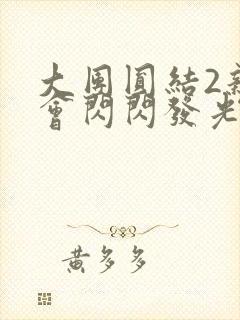 大團圓結2新
會閃閃發光
黃多多